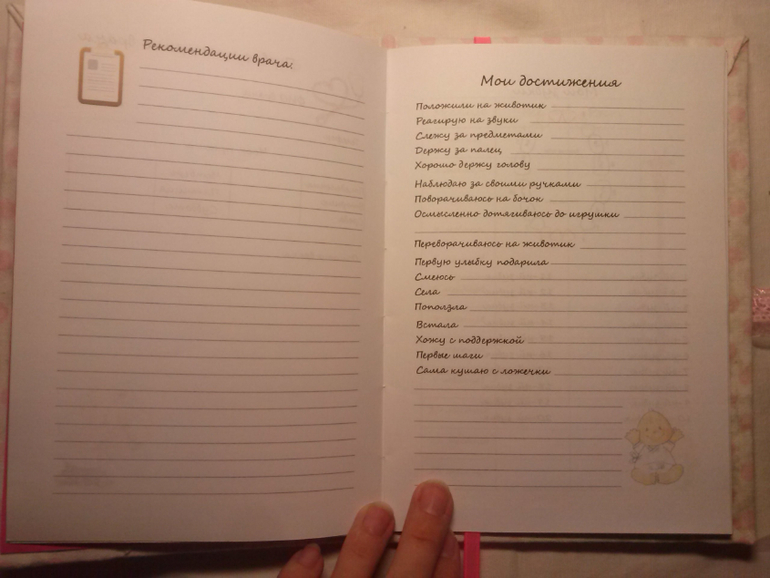 Рекомендации врача:
Мои достижения
Положили на животик
Реагирую на звуки
Слежу за предметами
Держу за палец
Хорошо держу голову
Наблюдаю за своими ручками
Поворачиваюсь на бочок
Осмысленно дотягиваюсь до игрушки
Переворачиваюсь на животик
Первую улыбку подарила
Смеюсь
Села
Поползла
Встала
Хожу с поддержкой
Первые шаги
Сама кушаю с ложечки